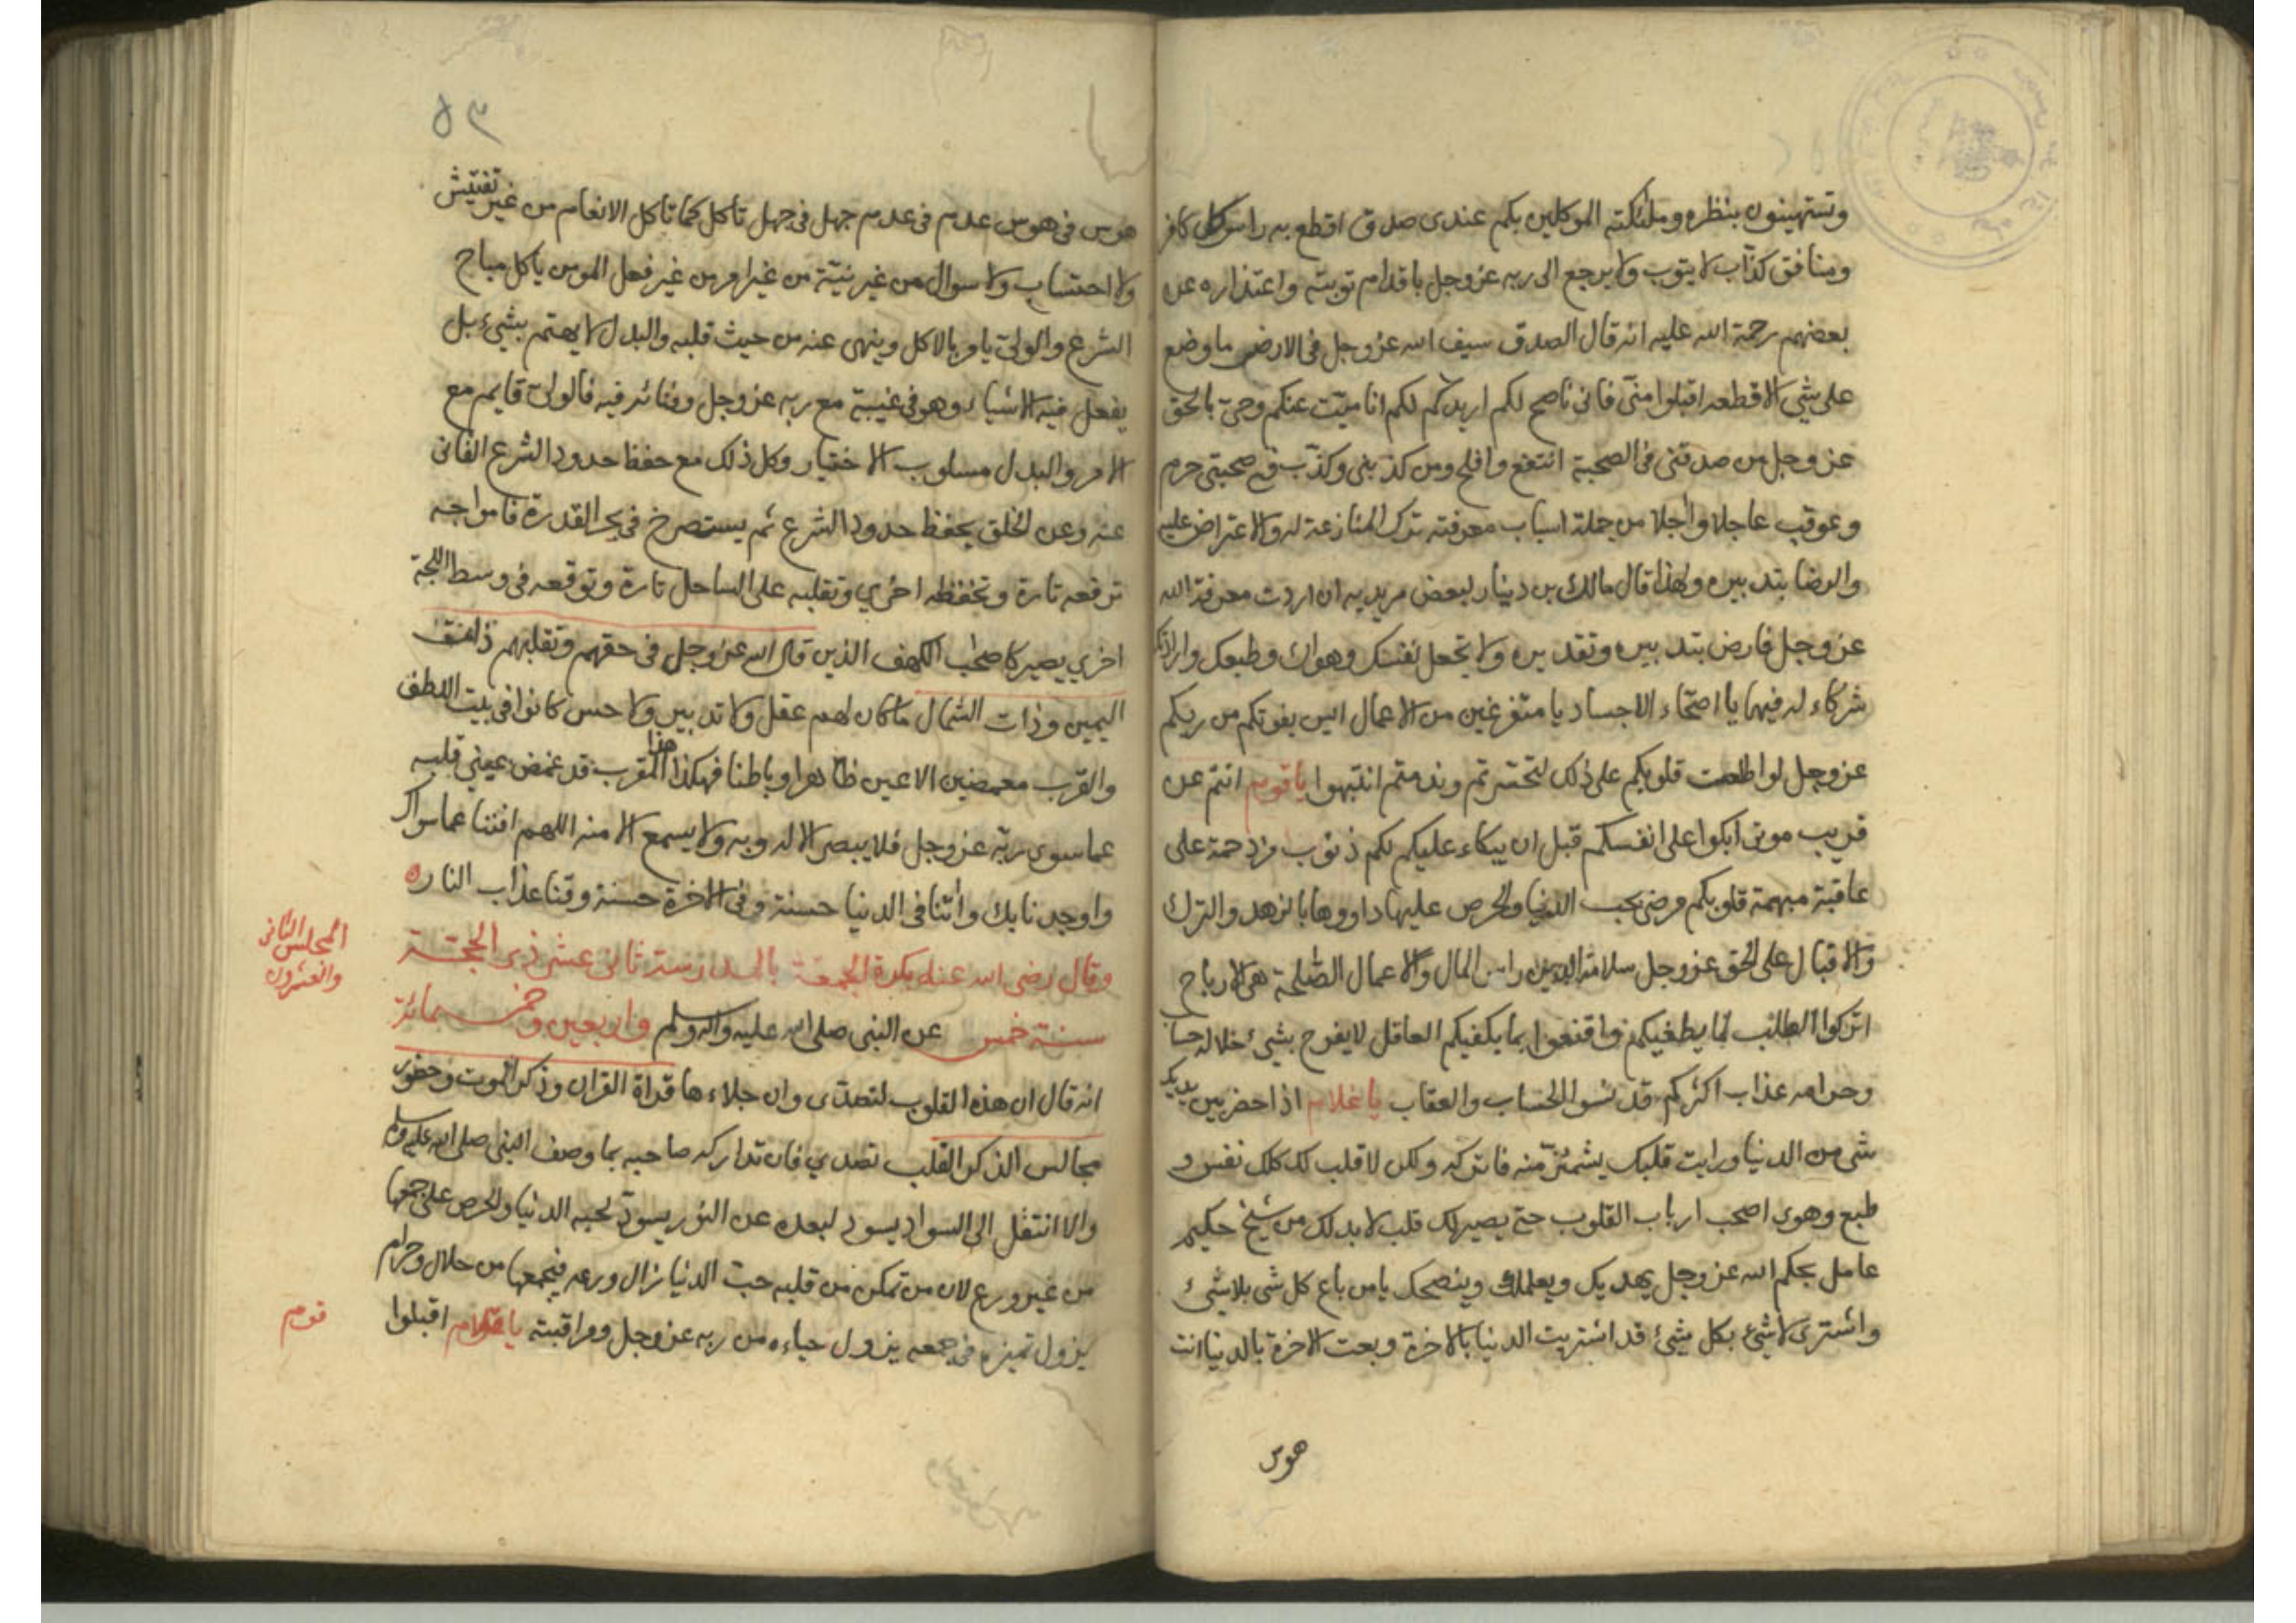 وتستهينون بنظره وملئكته الموكلين بكم عندى صدق اقطع به راس كل كافر
ومنافق كذّاب لا يتوب ولا يرجع الى ربه عز وجل باقدام توبته واعتذاره عن
بعضهم رحمة الله عليه انه قال الصدق سيف الله عز وجل فى الارض ما وضع
على شئ الا قطعه اقبلوا منّى فانى ناصح لكم اريدكم لكم انا ميّت عنكم وحىّ بالحق
عز وجل من صدقنى فى الصحبة انتفع وافلح ومن كذبنى وكذّب فى صحبتى حرم
وعوقب عاجلا وآجلا من جملة اسباب معرفته ترك المنازعة له والاعتراض عليه
والرضا بتدبيره ولهذا قال مالك بن دينار لبعض مريديه ان اردت معرفة الله
عز وجل فارض بتدبيره وتقديره ولا تجعل نفسك وهواك وطبعك وارادتك
شركاء له فيهما يا اصحّاء الاجساد يا متفرغين من الاعمال ايس يفوتكم من ربكم
عز وجل لو اطلعت قلوبكم على ذلك لتحسّرتم وندمتم انتبهوا يا قوم انتم عن
قريب موتى ابكوا على انفسكم قبل ان يبكاء عليكم لكم ذنوب مزدحمة على
عاقبة مبهمة قلوبكم مرضى بحب الدنيا والحرص عليها داووها بالزهد والترك
والاقبال على الحق عز وجل سلامة الدين راس المال والاعمال الصّلحة هى الارباح
اتركوا الطلب لما يطغيكم واقنعوا بما يكفيكم العاقل لا يفرح بشئ حلاله حساب
وحرامه عذاب اكثركم قد نسوا الحساب والعقاب يا غلام اذا حضر بين يديك
شئ من الدنيا ورايت قلبك يشمئزّ منه فاتركه ولكن لا قلب لك كلك نفس و
طبع وهوى اصحب ارباب القلوب حتى يصير لك قلب لا بد لك من شيخ حكيم
عامل بحكم الله عز وجل يهديك ويعلمك وينصحك يا من باع كل شى بلا شئ
واشترى لا شئ بكل شئ قد اشتريت الدنيا بالاخرة وبعت الاخرة بالدنيا انت
هوس
٥٣
هوس فى هوس عدم فى عدم جهل فى جهل تاكل كما تاكل الانعام من غير تفتيش
ولا احتساب ولا سوال من غير نيّة من غير امر من غير فعل المومن ياكل مباح
الشرع والولىّ يامر بالاكل وينهى عنه من حيث قلبه والبدل لا يهتم بشئ بل
يفعل فيه الاشياء وهو فى غيبة مع ربه عز وجل وفنائه فيه فالولىّ قايم مع
الامر والبدل مسلوب الاختيار وكل ذلك مع حفظ حدود الشرع الفانى
عنه وعن الخلق يحفظ حدود الشرع ثم يستصرخ فى بحر القدرة فامواجه
ترفعه تارة وتخفظه اخرى وتقلبه على الساحل تارة وتوقعه فى وسط اللجة
اخرى يصير كاصحٰب الكهف الذين قال الله عز وجل فى حقهم وتقلبهم ذات
اليمين وذات الشمال ما كان لهم عقل ولا تدبير ولا حس كانوا فى بيت اللطف
والقرب مغمضين الاعين ظاهرا وباطنا فهكذا هذا المقرب قد غمض عينى قلبه
عما سوى ربّه عز وجل فلا يبصر الا له وبه ولا يسمع الا منه اللهم افننا عما سواك
واوجدنا بك وآتنا فى الدنيا حسنة وفى الاخرة حسنة وقنا عذاب النار ه
المجلس الثانى
والعشرون
وقال رضى الله عنه بكرة الجمعة بالمدرسة ثانى عشر ذى الحجّة
سنة خمس واربعين وخمسمائة عن النبى صلى الله عليه واله وسلم
انه قال ان هذه القلوب لتصدّى وان جلاءها قراة القران وذكر الموت وحضور
مجالس الذكر القلب تصدى فان تداركه صاحبه بما وصف النبى صلى الله عليه وسلم
والا انتقل الى السواد يسود لبعده عن النور يسودّ لحبه الدنيا والحرص على جمعها
من غير ورع لان من تمكن من قلبه حبّ الدنيا زال ورعه فيجمعها من حلال وحرام
يزول تميزه فى جمعه يزول حياءه من ربه عز وجل ومراقبته يا غلام اقبلوا
قوم